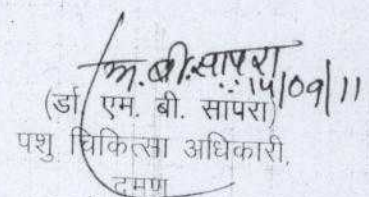 म. बी. सापरा
14/09/11
(डॉ एम. बी. सापरा)
पशु चिकित्सा अधिकारी,
दमण